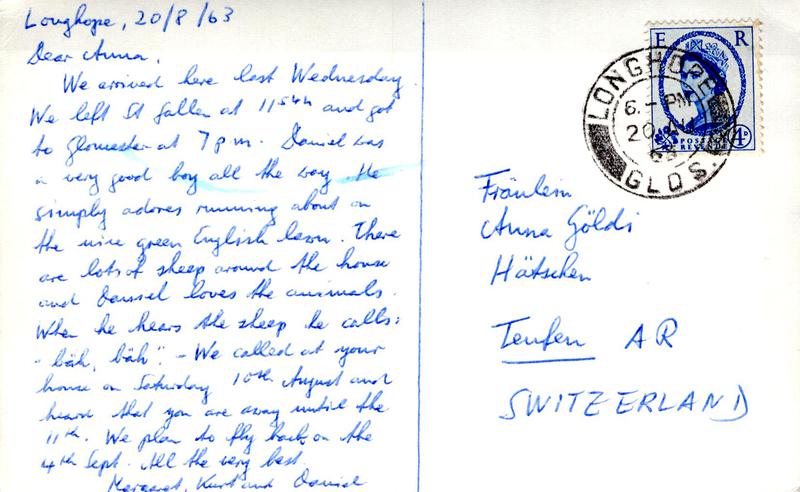 Longhope, 20/8/63
Dear Anna,
We arrived here last Wednesday.
We left St Gallen at 11 54h and got
to Gloucester at 7 pm. Daniel was
a very good boy all the way. He
simply adores running about on
the nice green English lawn. There
are lots of sheep around the house
and Daniel loves the animals.
When he hears the sheep he calls:
"bäh, bäh". - We called at your
house on Saturday 10th August and
heard that you are away until the
11th. We plan to fly back on the
4th Sept. All the very best
Margaret, Kurt and Daniel
E R
POSTAGE
REVENUE
4D
LONGHOPE
6. - PM
20 AU
63
GLOS.
Fräulein
Anna Göldi
Hätschen
Teufen AR
SWITZERLAND